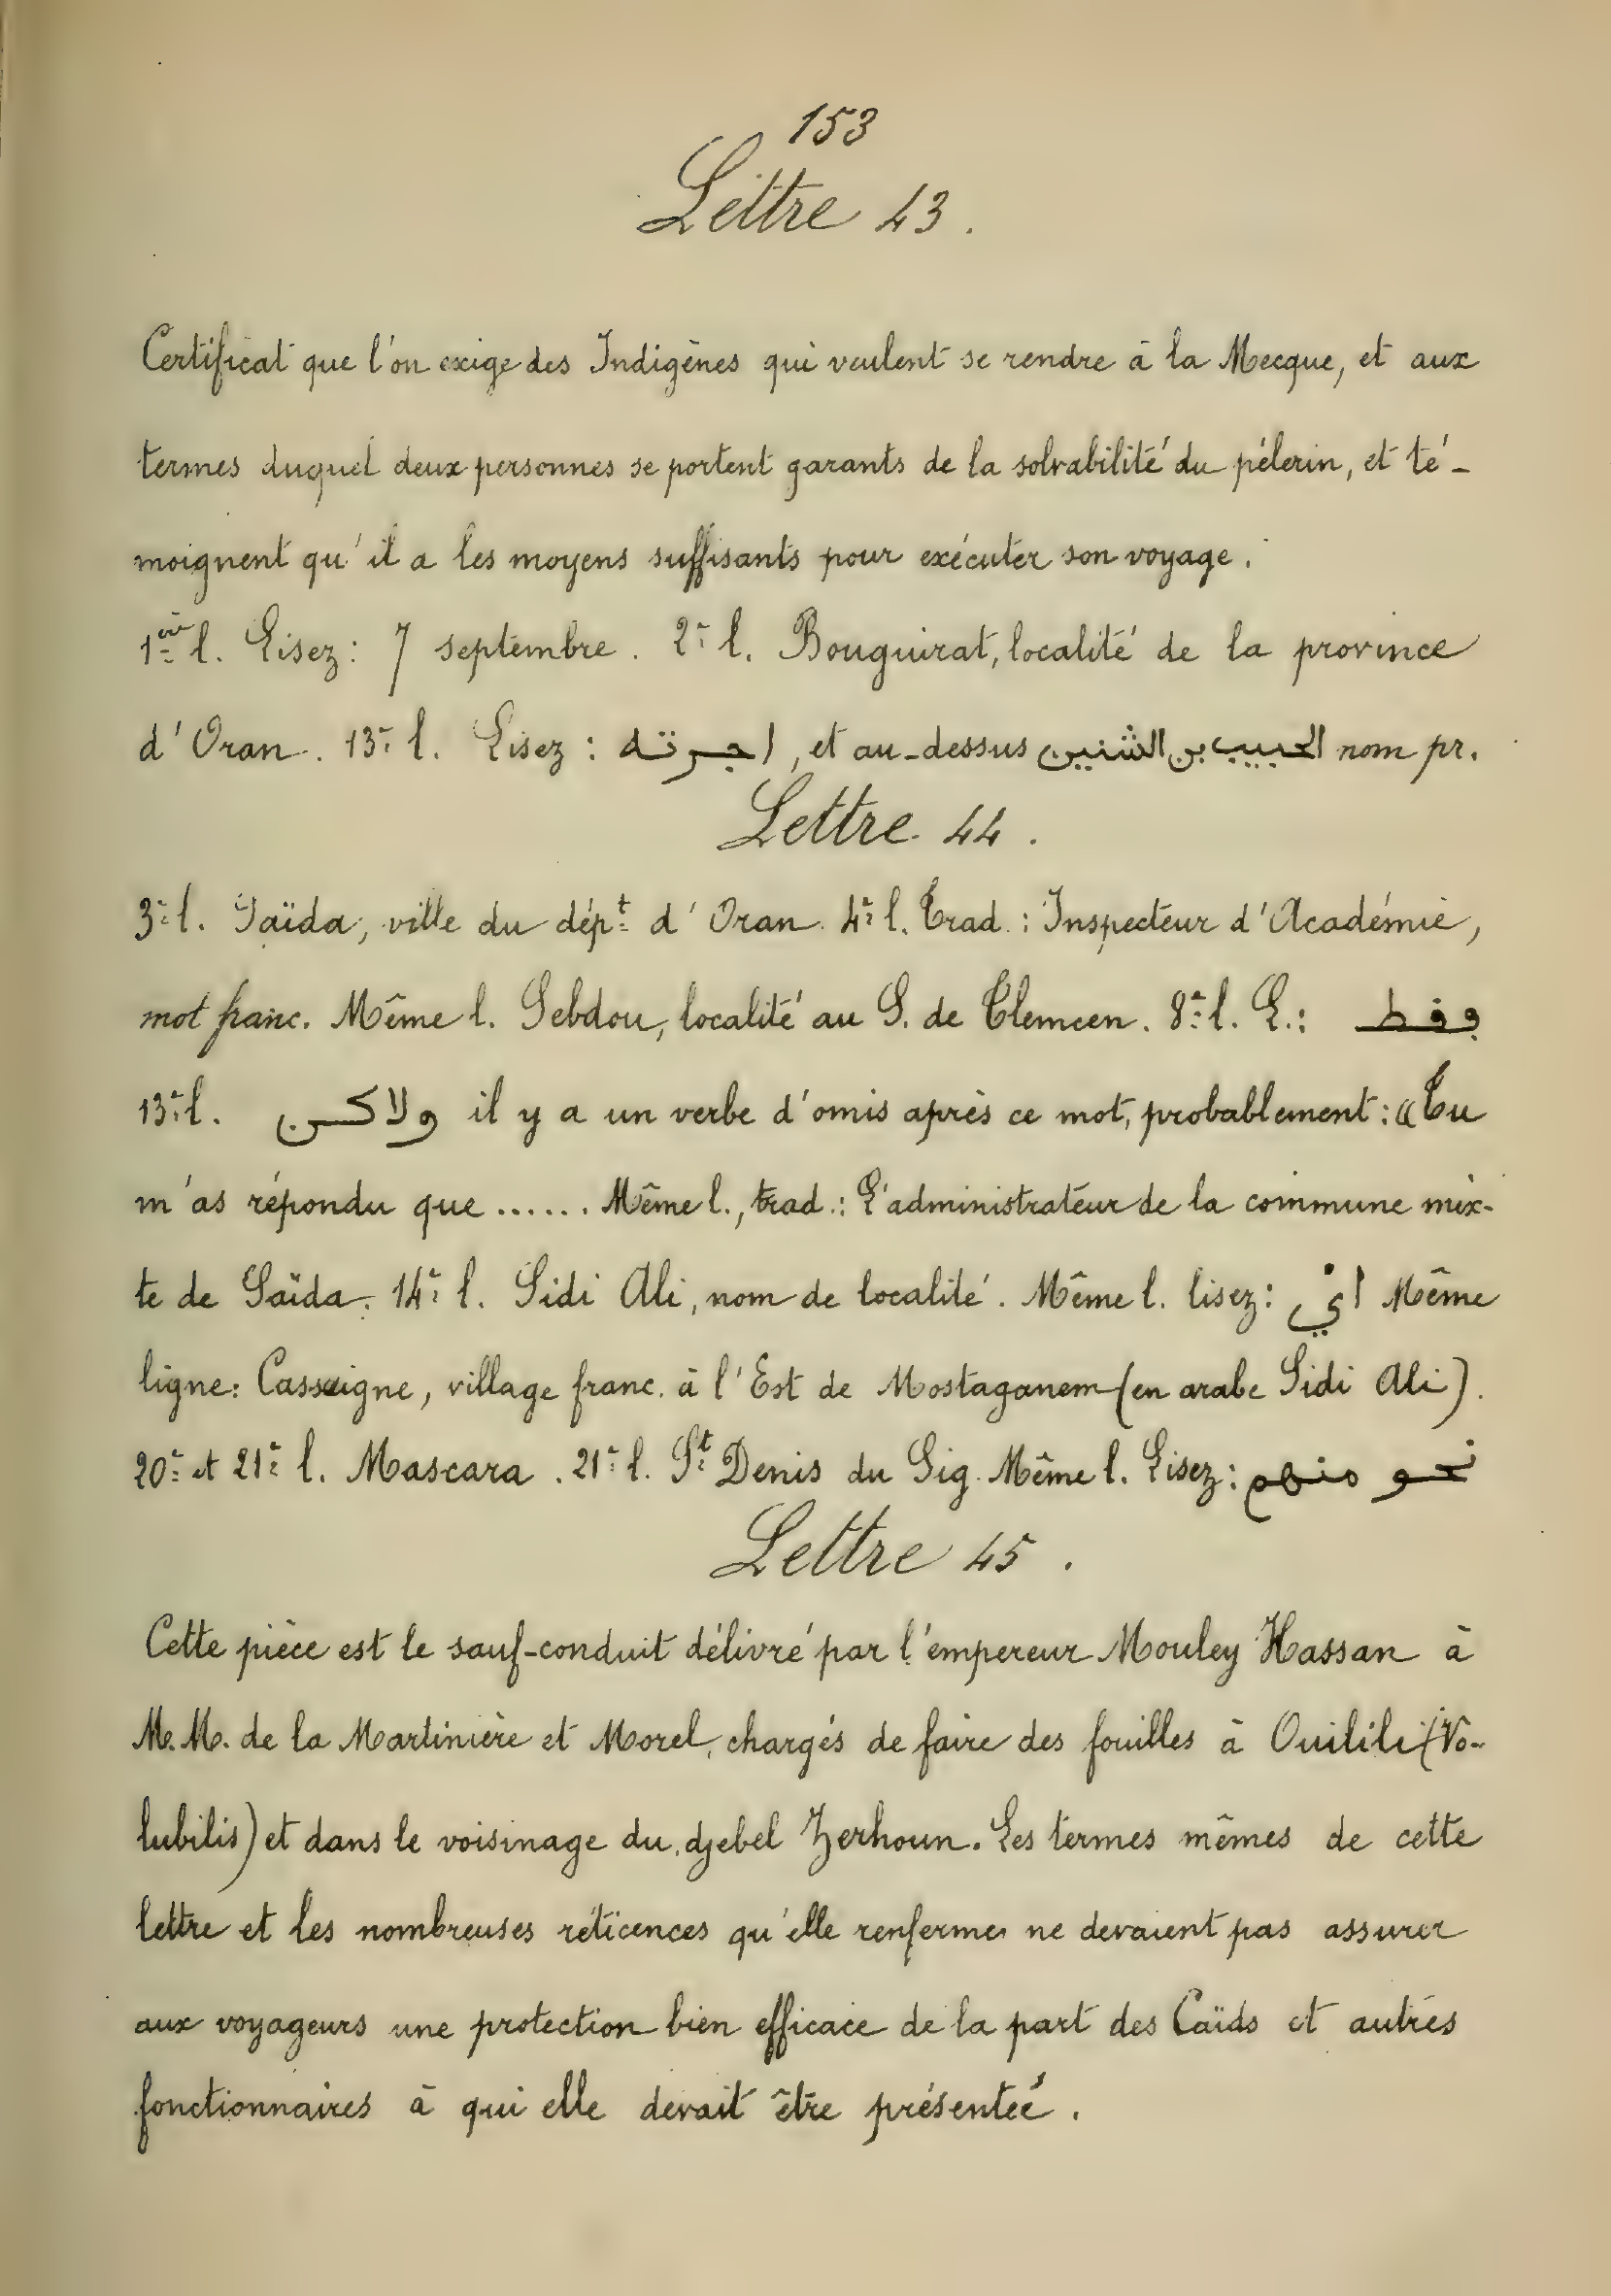 153
Lettre 43.
Certificat que l'on exige des Indigènes qui veulent se rendre à la Mecque, et aux
termes duquel deux personnes se portent garants de la solvabilité du pélerin, et té-
moignent qu'il a les moyens suffisants pour exécuter son voyage.
1ère l. Lisez: 7 septembre. 2e l. Bouguirat, localité de la province
d'Oran. 13e l. Lisez: اجرته, et au-dessus الحبيب بن الشنين nom pr.
Lettre 44.
3e l. Saïda, ville du dépt d'Oran. 4e l. Trad.: Inspecteur d'Académie,
mot franc. Même l. Sebdou, localité au S. de Tlemcen. 8e l. L.:
13e l. ولاكن il y a un verbe d'omis après ce mot, probablement: «Tu
m'as répondu que ...... Même l., trad.: L'administrateur de la commune mix-
te de Saïda. 14e l. Sidi Ali, nom de localité. Même l. lisez: اي Même
ligne: Cassaigne, village franc. à l'Est de Mostaganem (en arabe Sidi Ali).
20e et 21e l. Mascara. 21e l. St Denis du Sig. Même l. Lisez: نحو منهم
Lettre 45.
Cette pièce est le sauf-conduit délivré par l'empereur Mouley Hassan à
M.M. de la Martinière et Morel, chargés de faire des fouilles à Ouilili (Vo-
lubilis) et dans le voisinage du djebel Zerhoun. Les termes mêmes de cette
lettre et les nombreuses réticences qu'elle renferme ne devaient pas assurer
aux voyageurs une protection bien efficace de la part des Caïds et autres
fonctionnaires à qui elle devait être présentée.